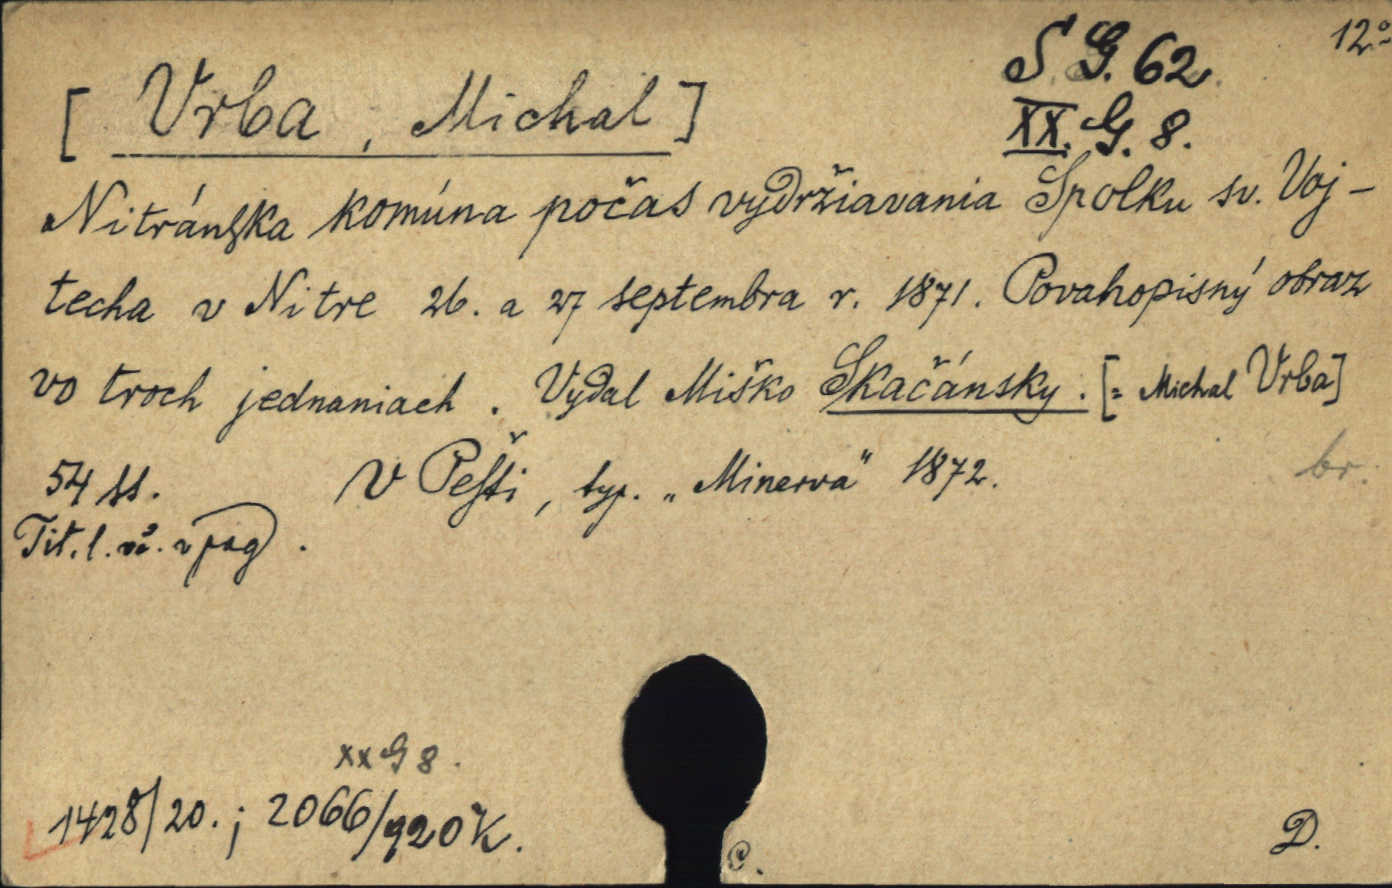 12°
S G. 62
[ Vrba, Michal ]
XX. G. 8.
Nitránska komúna počas vydržiavania Spolku sv. Voj-
techa v Nitre 26. a 27 septembra r. 1871. Povahopisný obraz
vo troch jednaniach. Vydal Miško Skačánsky. [= Michal Vrba]
54 ss. V Pešti, typ. „Minerva" 1872. br.
Tit. l. vč. v pag.
xx G 8.
1428/20. ; 2066/920 K.
C. D.